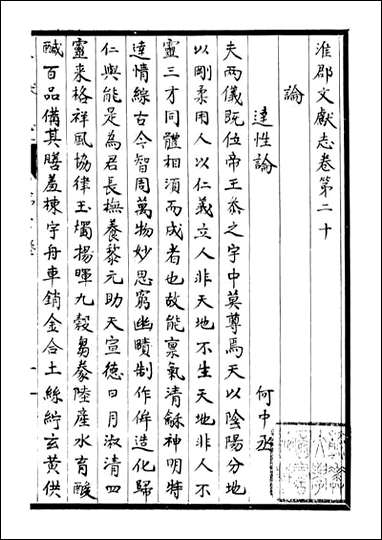 淮郡文獻志卷第二十
論
達性論
何中丞
夫兩儀既位帝王叅之宇中莫尊焉天以陰陽分地
以剛柔用人以仁義立人非天地不生天地非人不
靈三才同體相須而成者也故能禀氣清龢神明特
達情綜古今智周萬物妙思窮幽賾制作侔造化歸
仁與能是為君長撫養黎元助天宣德日月淑清四
靈来格祥風協律玉燭揚暉九榖芻豢陸産水育酸
醎百品備其膳羞棟宇舟車銷金合土絲紵玄黄供